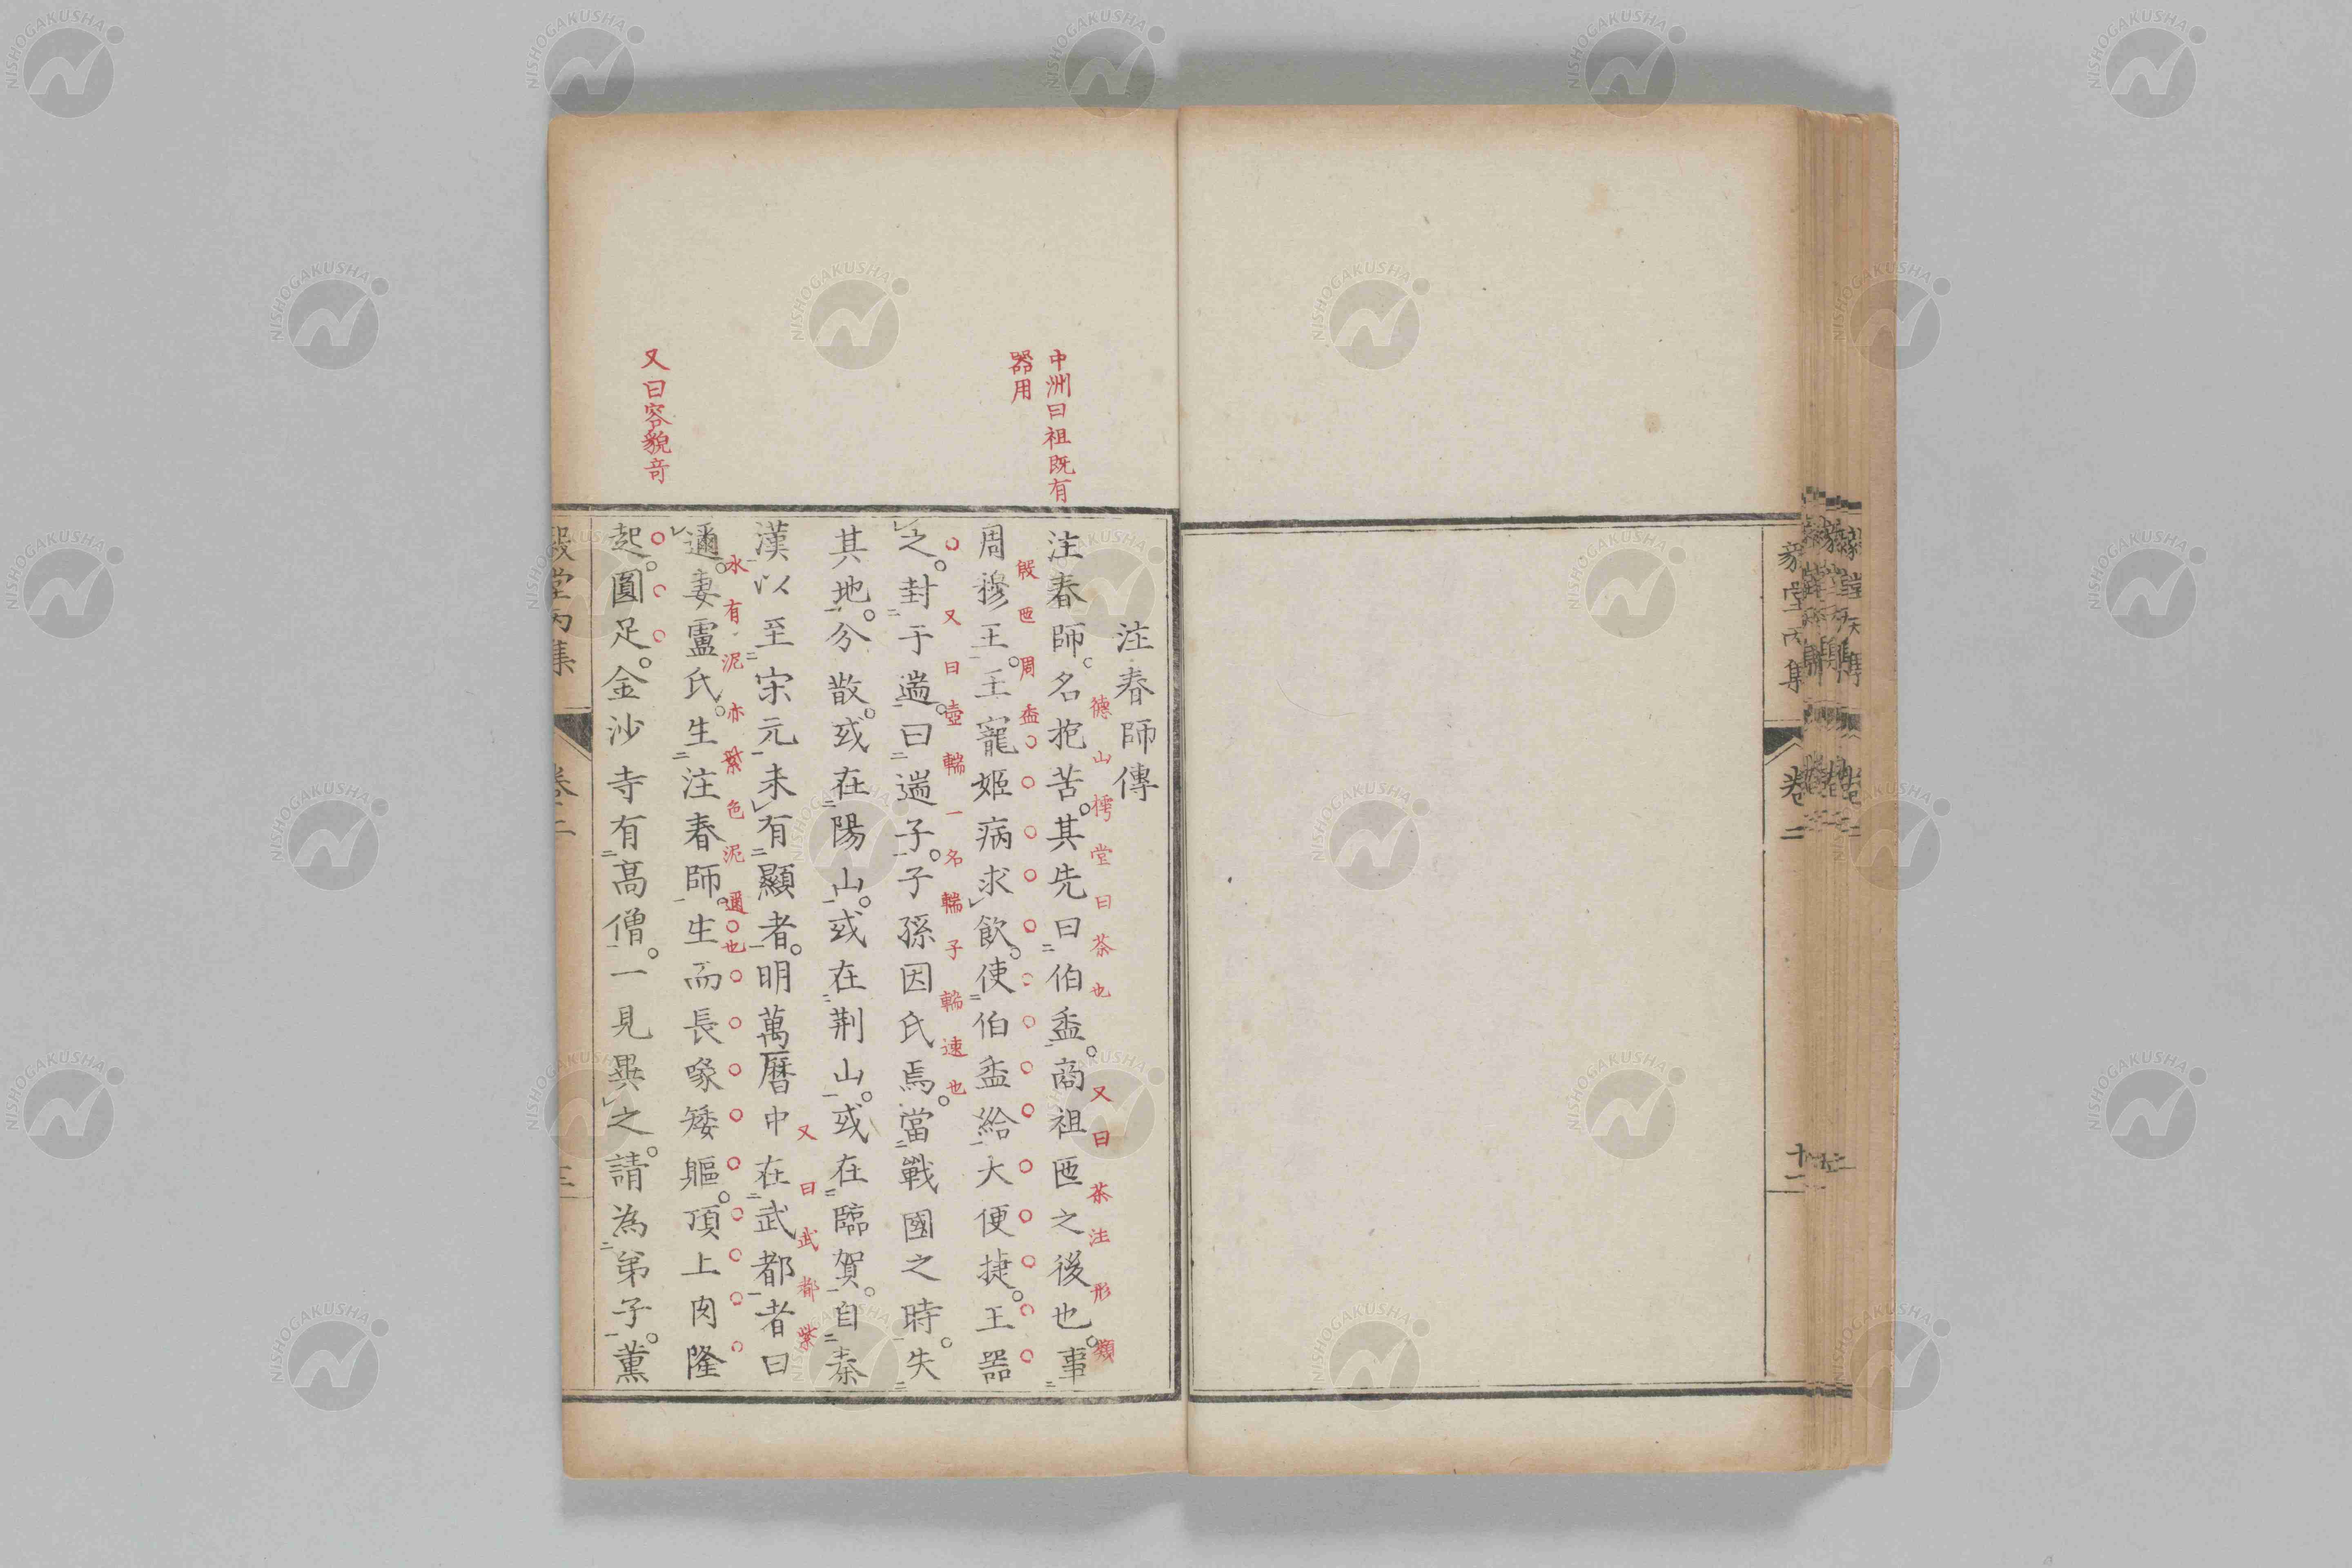 中洲曰祖既有
器用
又曰容貌奇
注春師傳
注春師。名抱苦。其先曰伯盉。商祖匜之後也。事
德山樗堂曰茶也
又曰茶注形類
周穆王。王寵姬病求飲。使伯盉給大便捷。王器
殷匜周盉
之。封于遄。曰遄子。子孫因氏焉。當戰國之時。失
又曰壺輲一名輲子輲速也
其地。分散。或在陽山。或在荆山。或在臨賀。自秦
漢以至宋元。未有顯者。明萬曆中在武都者曰
又曰武都紫
水有泥亦紫色泥通也
通。妻盧氏。生注春師。生而長喙矮軀。頂上肉隆
起。圓足。金沙寺有高僧。一見異之。請為弟子。薰
堂丙集
卷二
豢堂丙集
卷二
十二
NISHOGAKUSHA